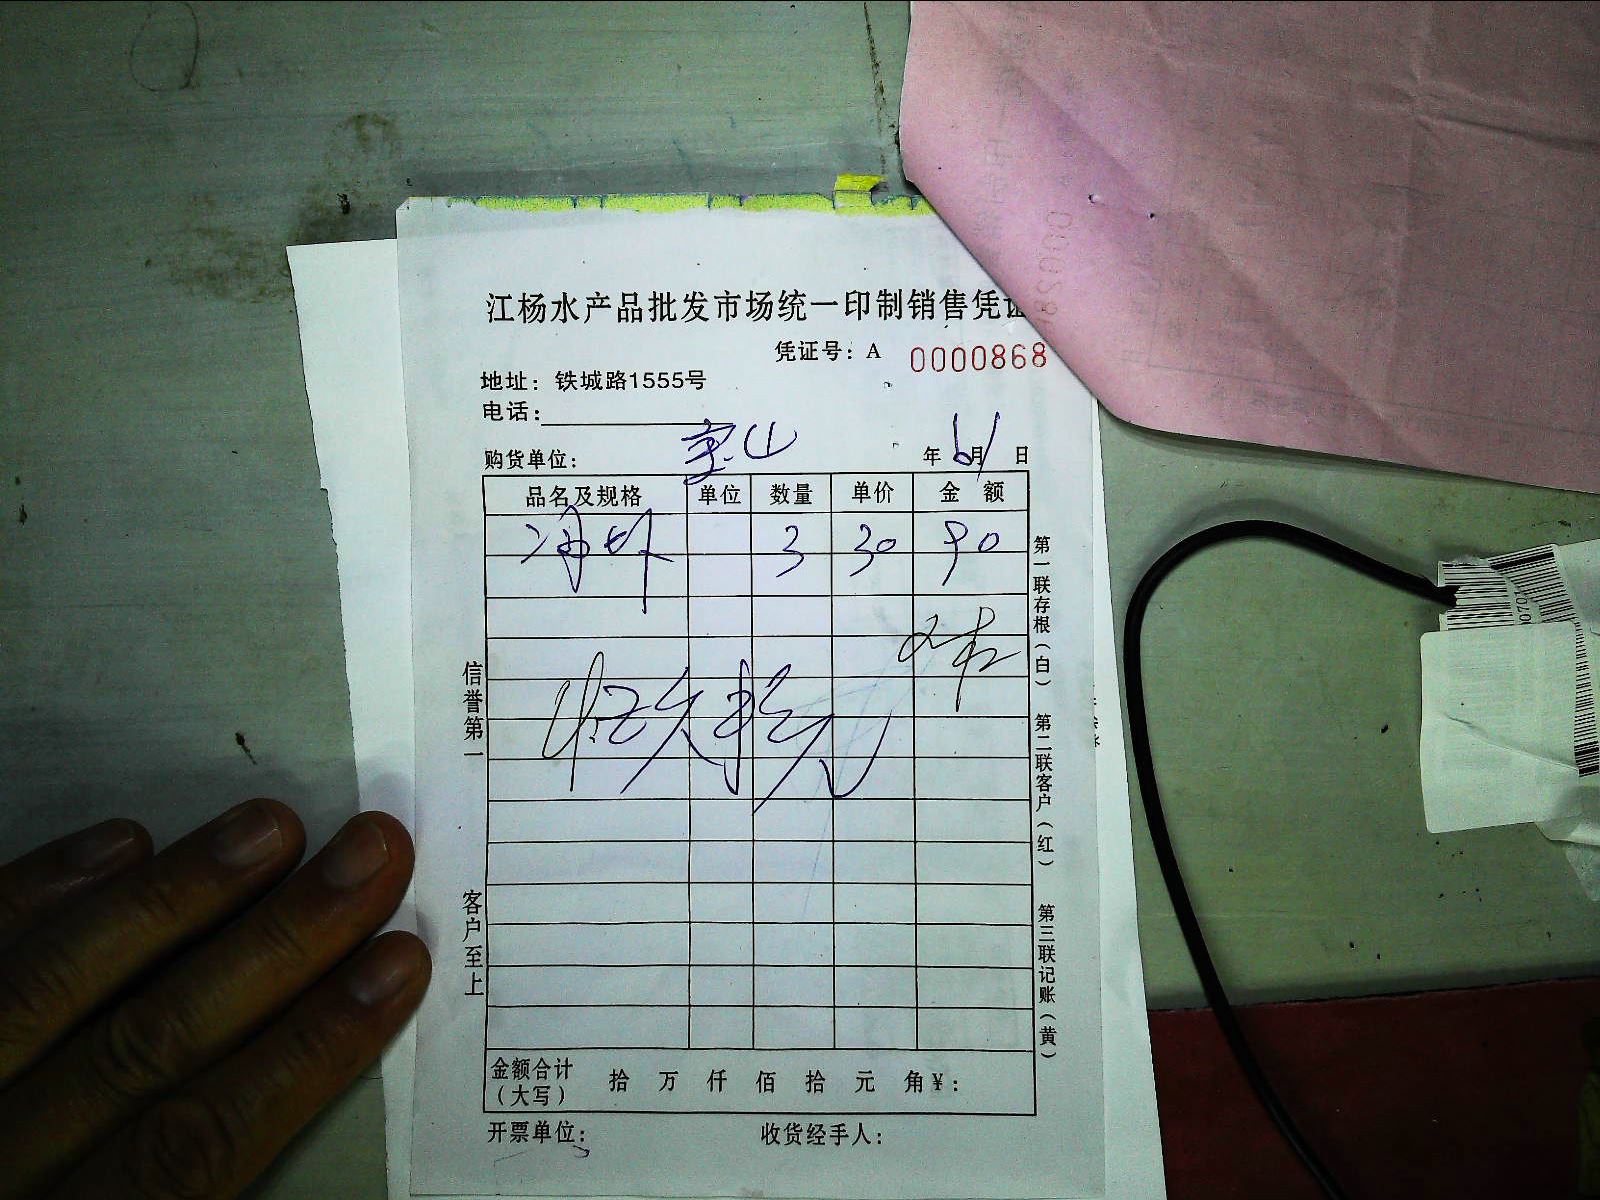 江杨水产品批发市场统一印制销售凭证
凭证号：A 0000868
地址：铁城路1555号
电话：
购货单位： 宝山 年 6/1 月 日
品名及规格 单位 数量 单价 金 额
3 30 90
第一联存根（白） 第二联客户（红） 第三联记账（黄）
信誉第一 客户至上
金额合计（大写） 拾 万 仟 佰 拾 元 角 ￥：
开票单位： 收货经手人：